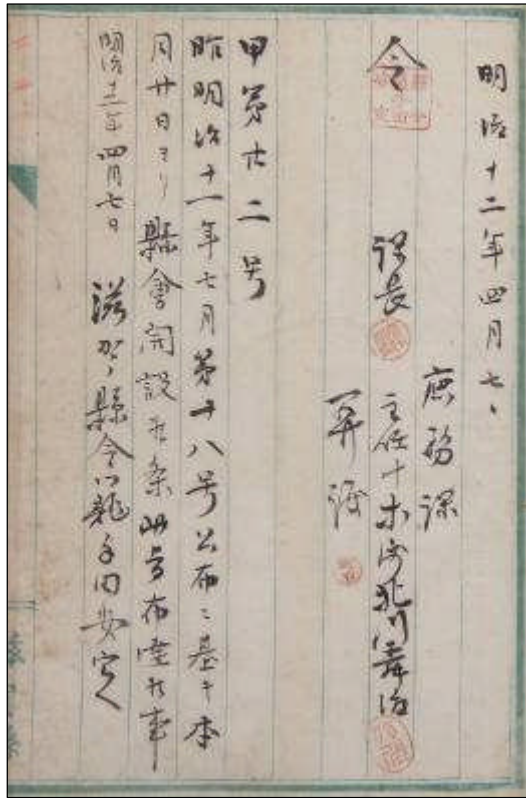 明治十二年四月七、
庶務課
令 課長 主任 北川舜治
甲第廿二号
昨明治十一年七月第十八号公布ニ基キ本
月廿日ヨリ縣會開設候条此旨布達候事
明治十二年四月七日 滋賀縣令籠手田安定